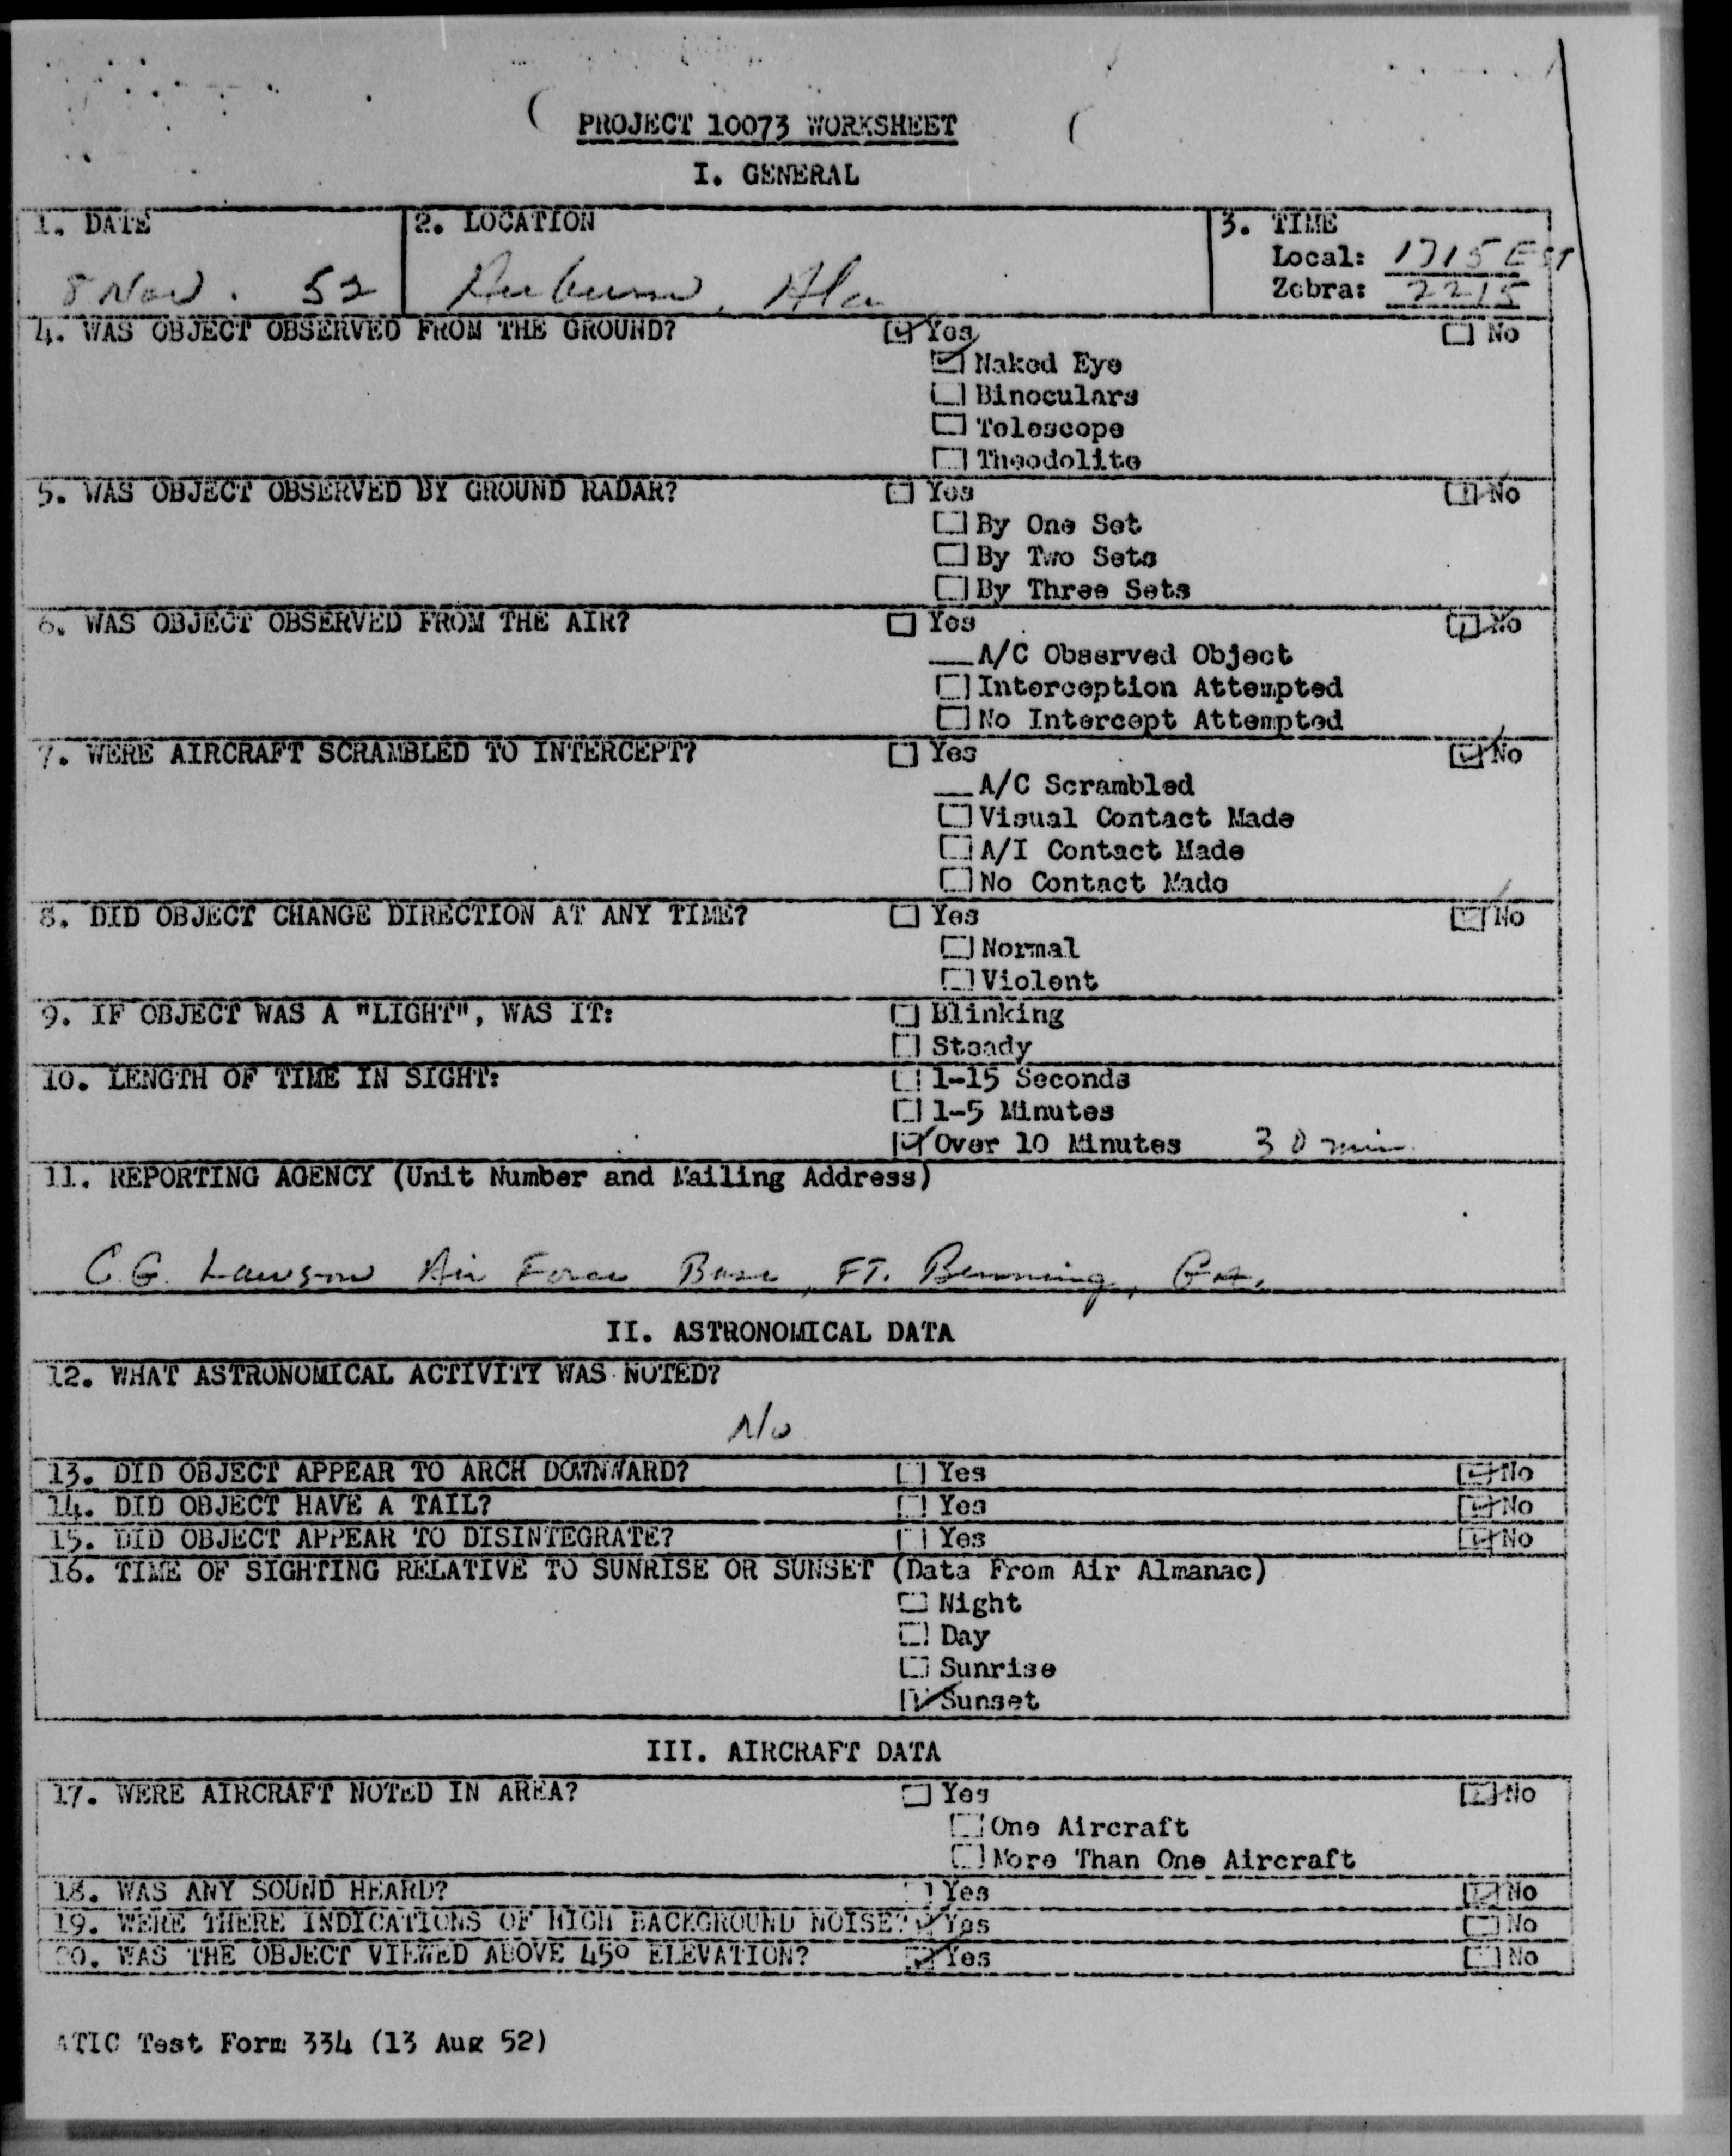 PROJECT 10073 WORKSHEET
I. GENERAL
1. DATE
8 Nov. 52
2. LOCATION
Auburn, Ala
3. TIME
Local: 1715 EST
Zebra: 2215
4. WAS OBJECT OBSERVED FROM THE GROUND? ☑ Yes ☐ No
☑ Naked Eye
☐ Binoculars
☐ Telescope
☐ Theodolite
5. WAS OBJECT OBSERVED BY GROUND RADAR? ☐ Yes ☑ No
☐ By One Set
☐ By Two Sets
☐ By Three Sets
6. WAS OBJECT OBSERVED FROM THE AIR? ☐ Yes ☑ No
__A/C Observed Object
☐ Interception Attempted
☐ No Intercept Attempted
7. WERE AIRCRAFT SCRAMBLED TO INTERCEPT? ☐ Yes ☑ No
__A/C Scrambled
☐ Visual Contact Made
☐ A/I Contact Made
☐ No Contact Made
8. DID OBJECT CHANGE DIRECTION AT ANY TIME? ☐ Yes ☑ No
☐ Normal
☐ Violent
9. IF OBJECT WAS A "LIGHT", WAS IT: ☐ Blinking
☐ Steady
10. LENGTH OF TIME IN SIGHT: ☐ 1-15 Seconds
☐ 1-5 Minutes
☑ Over 10 Minutes 30 min.
11. REPORTING AGENCY (Unit Number and Mailing Address)
C.G. Lawson Air Force Base, FT. Benning, GA.
II. ASTRONOMICAL DATA
12. WHAT ASTRONOMICAL ACTIVITY WAS NOTED?
No
13. DID OBJECT APPEAR TO ARCH DOWNWARD? ☐ Yes ☑ No
14. DID OBJECT HAVE A TAIL? ☐ Yes ☑ No
15. DID OBJECT APPEAR TO DISINTEGRATE? ☐ Yes ☑ No
16. TIME OF SIGHTING RELATIVE TO SUNRISE OR SUNSET (Data From Air Almanac)
☐ Night
☐ Day
☐ Sunrise
☑ Sunset
III. AIRCRAFT DATA
17. WERE AIRCRAFT NOTED IN AREA? ☐ Yes ☑ No
☐ One Aircraft
☐ More Than One Aircraft
18. WAS ANY SOUND HEARD? ☐ Yes ☑ No
19. WERE THERE INDICATIONS OF HIGH BACKGROUND NOISE? ☑ Yes ☐ No
20. WAS THE OBJECT VIEWED ABOVE 45° ELEVATION? ☑ Yes ☐ No
ATIC Test Form 334 (13 Aug 52)